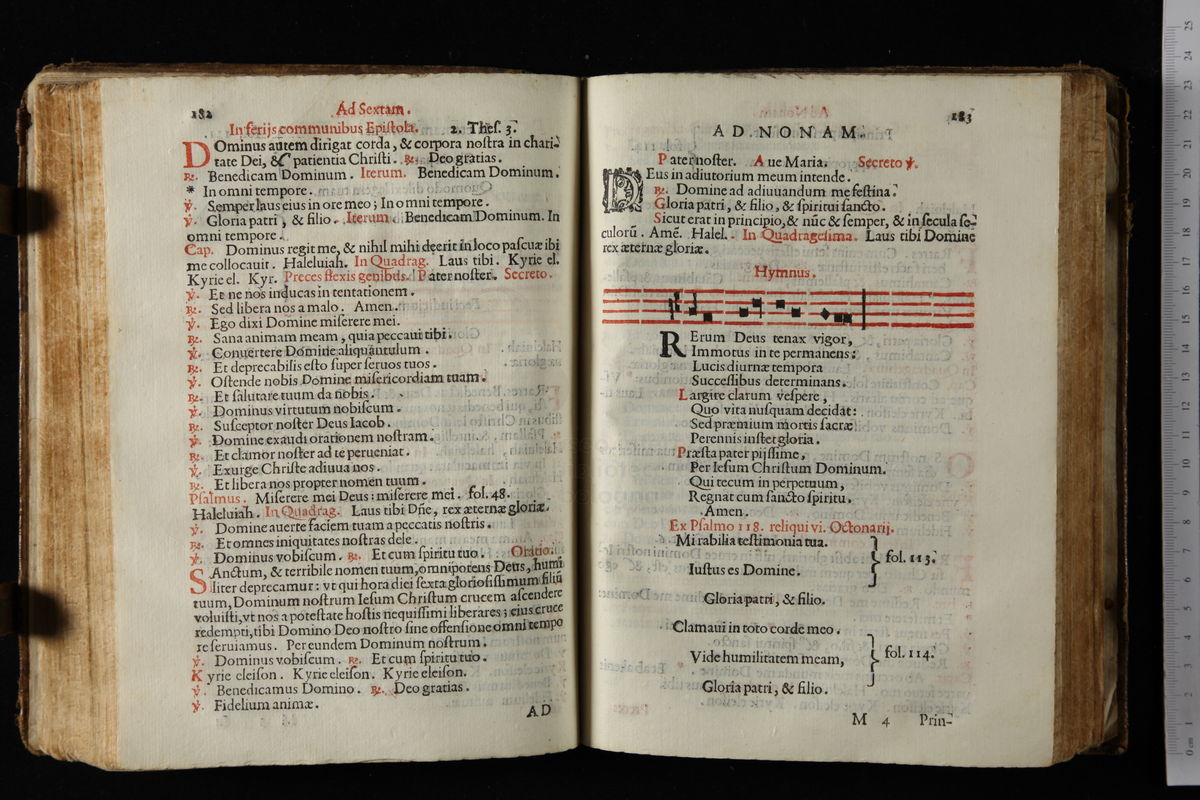 182
Ad Sextam.
In ferijs communibus Epiſtola. 2. Theſ. 3.
DOminus autem dirigat corda, & corpora noſtra in chari-
tate Dei, & patientia Chriſti. ℟. Deo gratias.
℟. Benedicam Dominum. Iterum. Benedicam Dominum.
* In omni tempore.
℣. Semper laus eius in ore meo; In omni tempore.
℣. Gloria patri, & filio. Iterum. Benedicam Dominum. In
omni tempore.
Cap. Dominus regit me, & nihil mihi deerit in loco paſcuæ ibi
me collocauit. Haleluiah. In Quadrag. Laus tibi. Kyrie el.
Kyrie el. Kyr. Preces flexis genibus. Pater noſter. Secreto.
℣. Et ne nos inducas in tentationem.
℟. Sed libera nos a malo. Amen.
℣. Ego dixi Domine miſerere mei.
℟. Sana animam meam, quia peccaui tibi.
℣. Conuertere Domine aliquantulum.
℟. Et deprecabilis eſto ſuper ſeruos tuos.
℣. Oſtende nobis Domine miſericordiam tuam.
℟. Et ſalutare tuum da nobis.
℣. Dominus virtutum nobiſcum.
℟. Suſceptor noſter Deus Iacob.
℣. Domine exaudi orationem noſtram.
℟. Et clamor noſter ad te perueniat.
℣. Exurge Chriſte adiuua nos.
℟. Et libera nos propter nomen tuum.
Pſalmus. Miſerere mei Deus: miſerere mei. fol. 48.
Haleluiah. In Quadrag. Laus tibi Dñe, rex æternæ gloriæ.
℣. Domine auerte faciem tuam a peccatis noſtris.
℟. Et omnes iniquitates noſtras dele.
℣. Dominus vobiſcum. ℟. Et cum ſpiritu tuo. Oratio.
SAnctum, & terribile nomen tuum, omnipotens Deus, humi
liter deprecamur: vt qui hora diei ſexta glorioſiſſimum filiũ
tuum, Dominum noſtrum Ieſum Chriſtum crucem aſcendere
voluiſti, vt nos a poteſtate hoſtis nequiſſimi liberares; eius cruce
redempti, tibi Domino Deo noſtro ſine offenſione omni tempo
re ſeruiamus. Per eundem Dominum noſtrum.
℣. Dominus vobiſcum. ℟. Et cum ſpiritu tuo.
Kyrie eleiſon. Kyrie eleiſon. Kyrie eleiſon.
℣. Benedicamus Domino. ℟. Deo gratias.
℣. Fidelium animæ.
AD
183
AD NONAM.
Pater noſter. Aue Maria. Secreto ℣.
DEus in adiutorium meum intende.
℟. Domine ad adiuuandum me feſtina.
Gloria patri, & filio, & ſpiritui ſancto.
Sicut erat in principio, & nũc & ſemper, & in ſecula ſe-
culorũ. Amẽ. Halel. In Quadrageſima. Laus tibi Domine
rex æternæ gloriæ.
Hymnus.
RErum Deus tenax vigor,
Immotus in te permanens:
Lucis diurnæ tempora
Succeſſibus determinans.
Largire clarum veſpere,
Quo vita nuſquam decidat:
Sed præmium mortis ſacræ
Perennis inſtet gloria.
Præſta pater pijſſime,
Per Ieſum Chriſtum Dominum.
Qui tecum in perpetuum,
Regnat cum ſancto ſpiritu.
Amen.
Ex Pſalmo 118. reliqui vi. Octonarij.
Mirabilia teſtimonia tua.
fol. 113.
Iuſtus es Domine.
Gloria patri, & filio.
Clamaui in toto corde meo.
Vide humilitatem meam,
fol. 114.
Gloria patri, & filio.
M 4 Prin-